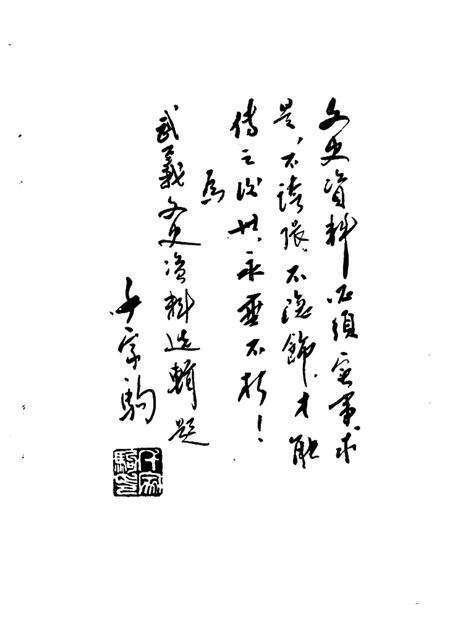 文史资料必须实事求
是，不誇張、不隐飾，才能
傳之後世，永垂不朽！
為
武義文史资料选輯题
千家駒
千家駒印